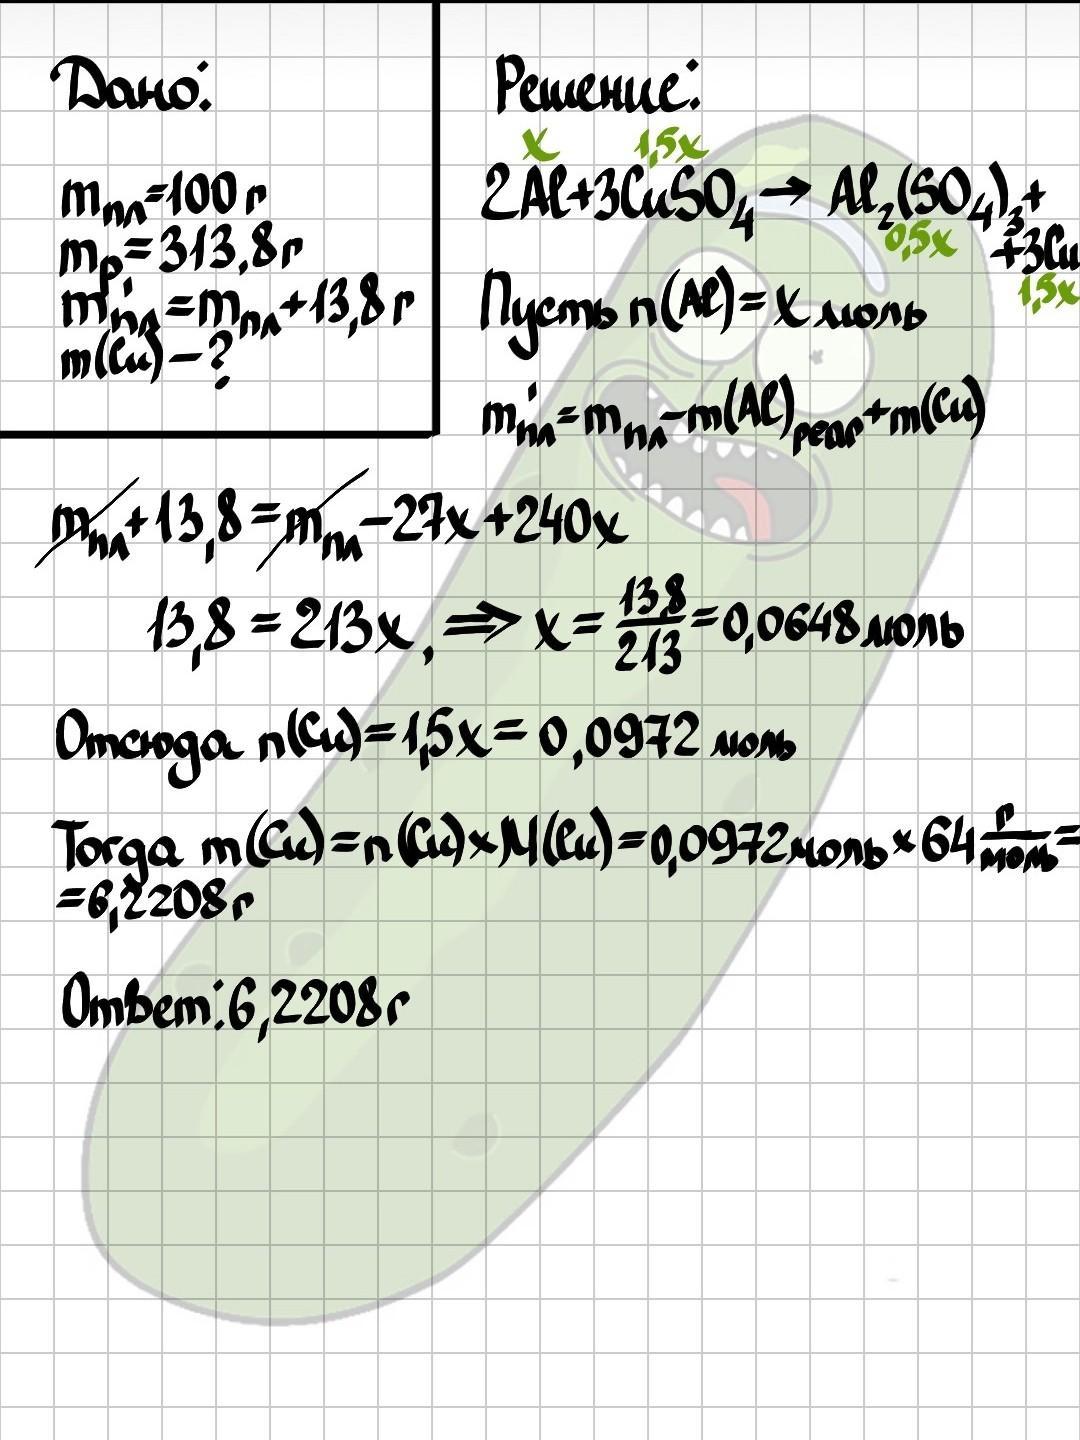 Дано:
mпл=100 г
mр=313,8 г
m'пл=mпл+13,8 г
m(Cu)–?
Решение:
x 1,5x
2Al+3CuSO₄→ Al₂(SO₄)₃+
0,5x
+3Cu
1,5x
Пусть n(Al)=x моль
m'пл=mпл–m(Al)реаг+m(Cu)
mпл+13,8=mпл–27x+240x
13,8=213x, ⇒ x=13,8/213=0,0648моль
Отсюда n(Cu)=1,5x=0,0972 моль
Тогда m(Cu)=n(Cu)×M(Cu)=0,0972моль×64 г/моль=
=6,2208г
Ответ:6,2208г